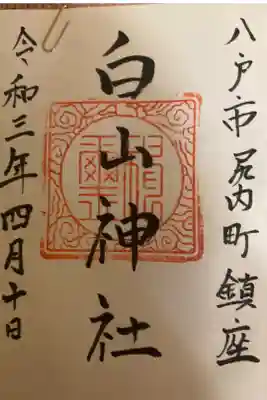 八戸市尻内町鎮座
白山神社
令和三年四月十日